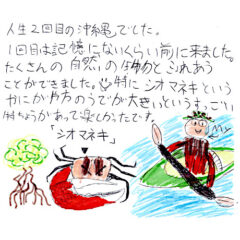 人生2回目の沖縄でした。
1回目は記憶にないくらい前に来ました。
たくさんの自然の生物とふれあう
ことができました。特にシオマネキという
かにが片方のうでが大きいという、すごい
特ちょうがあって楽しかったです。
「シオマネキ」
My